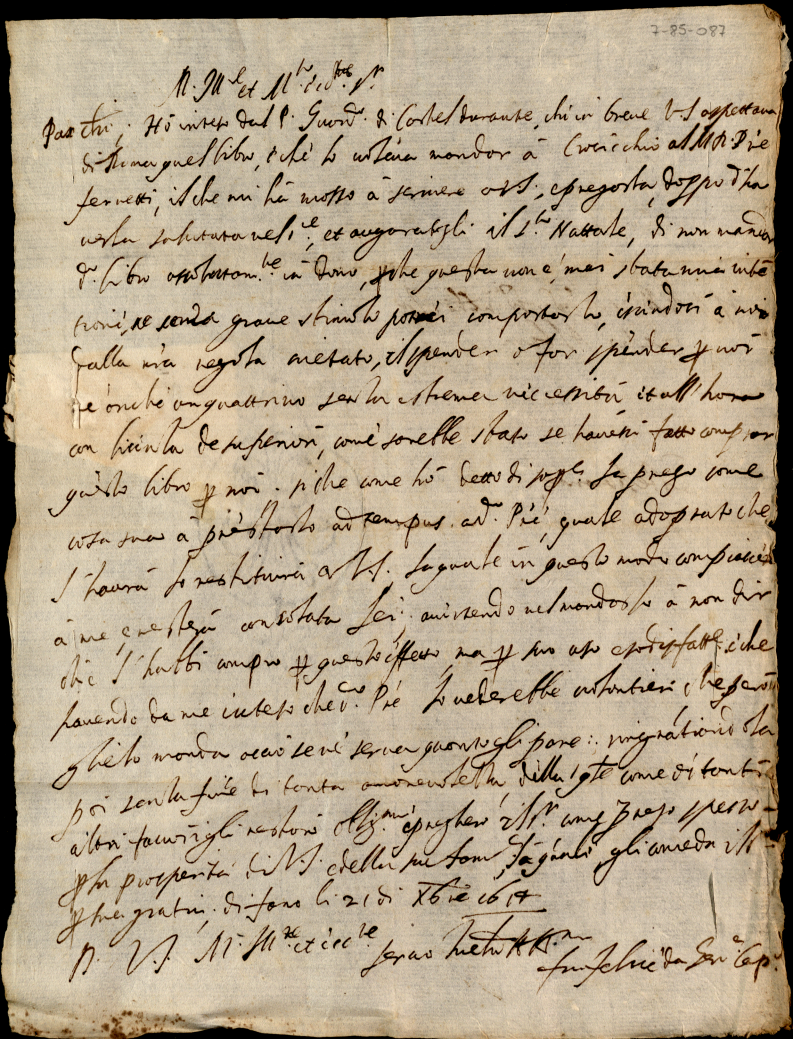 7-85-087
M. Ill.e et M.to
Pax Chri; Hó inteso dal P. Guard.o di Castel durante, chi in breve V.S. aspettava
di Roma quel libro, e ché lo voleva mandar á al M.R. P're
ferretti, il che mi há mosso á scrivere a V.S., e pregarla, doppo d'ha
verla salutata nel S.re, et auguratogli il S.to Nattale, di non mandar
d.o libro in dono, p che questa non é mai stata mia inte
tioni, ne senza grave potrei comportarlo, á noi
dalla n'ra regola vietato, il spender o far spender p noi
ne anche un quattrino senza estrema necessitá et all' hora
con licinza de superiori, come sarebbe stato se havessi fatto comprar
questo libro p noi. si che come hó detto di sop.a la prego come
cosa sua á prestarlo ad tempus ad.o P're, quale adoprato che
l'haurá lo restituirá a V.S. la quale in questo modo
á me, e resterá consolata lei; nel mandarlo á non dir
che l'habbi compro p questo effetto, ma p suo uso e che
havendo da me inteso che d.o P're lo vederebbe volontieri, che peró
glielo manda acció se ne serva quanto gli pare: ringratiandola
poi senza fine di tanta amorevolezza, della q'te come di tanti
altri favori gli restaró e pregheró il S.r come prego spesso
p la prosperitá di V.S. e della sua Sant.á quali gli conceda il S.r
p sua gratia; di fano li 21 di Xbre 1614
D. V.S. M. Ill.re et
servo
fra felice da Cap.o